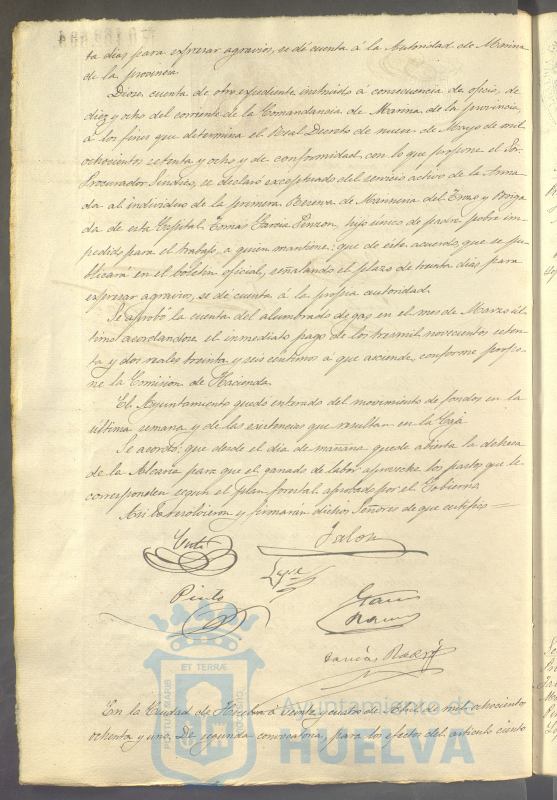 ta dias para expresar agravios, se dé cuenta á la Autoridad de Marina
de la provincia.
Diose cuenta de otro expediente instruido á consecuencia de oficio, de
diez y ocho del corriente de la Comandancia de Marina de la provincia,
á los fines que determina el Real Decreto de nueve de Mayo de mil
ochocientos setenta y ocho y de conformidad con lo que propone el Sor.
Procurador Sindico, se declaró exceptuado del servicio activo de la Arma
da al individuo de la primera Reserva de Marineria del Trozo y Briga
da de esta Capital Tomas Garcia Penzon, hijo único de padre pobre im
pedido para el trabajo, a quien mantiene: que de este acuerdo, que se pu
blicará en el boletin oficial, señalando el plazo de treinta dias para
expresar agravios, se dé cuenta á la propia autoridad.
Se aprobó la cuenta del alumbrado de gas en el mes de Marzo úl
timo acordandose el inmediato pago de los tres mil novecientos setenta
y dos reales treinta y seis centimos a que asciende, conforme propo
ne la Comision de Hacienda.
El Ayuntamiento quedó enterado del movimiento de fondos en la
última semana y de las existencias que resultan en la Caja
Se acordó: que desde el dia de mañana quede abierta la dehesa
de la Alcaria para que el ganado de labor aproveche los pastos que le
corresponden segun el plan forestal aprobado por el Gobierno.
Asi lo resolvieron y firmarán dichos Señores de que certifico =
Jalon
Pinto
Garcia Ramos
ET TERRÆ
PORTUS MARIS
CUSTODIA
Ayuntamiento de
HUELVA
En la Ciudad de Huelva á veinte y cuatro de Abril de mil ochocientos
ochenta y uno. De segunda convocatoria, para los efectos del articulo ciento